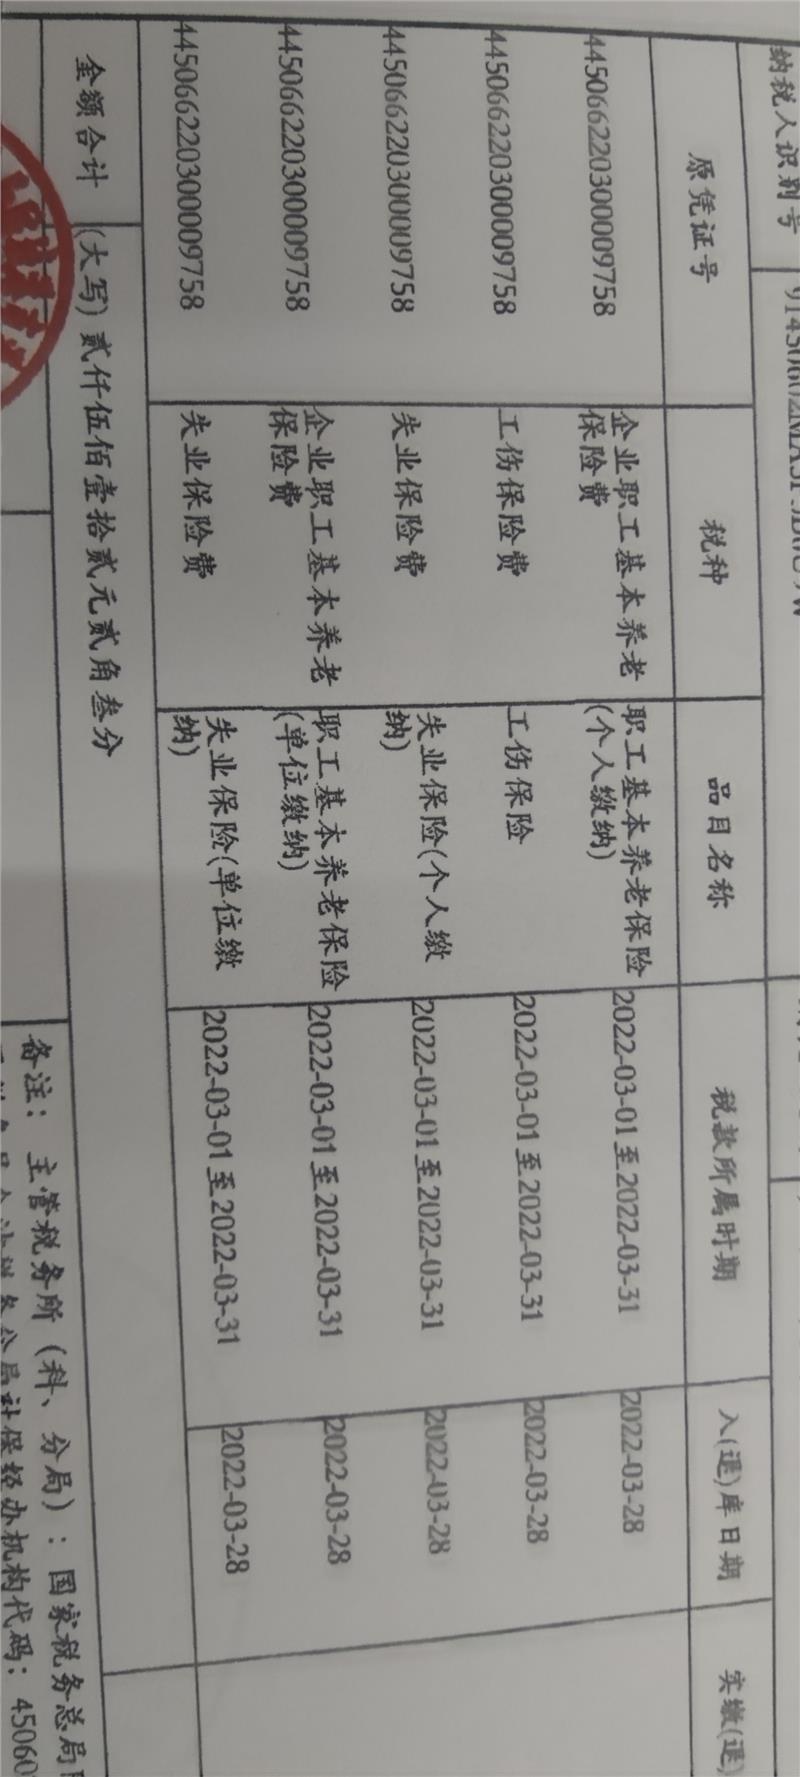 纳税人识别号
原凭证号 税种 品目名称 税款所属时期 入(退)库日期 实缴(退)
445066220300009758 企业职工基本养老保险费 职工基本养老保险(个人缴纳) 2022-03-01至2022-03-31 2022-03-28
445066220300009758 工伤保险费 工伤保险 2022-03-01至2022-03-31 2022-03-28
445066220300009758 失业保险费 失业保险(个人缴纳) 2022-03-01至2022-03-31 2022-03-28
445066220300009758 企业职工基本养老保险费 职工基本养老保险(单位缴纳) 2022-03-01至2022-03-31 2022-03-28
445066220300009758 失业保险费 失业保险(单位缴纳) 2022-03-01至2022-03-31 2022-03-28
金额合计 (大写)贰仟伍佰壹拾贰元贰角叁分
备注: 主管税务所(科、分局): 国家税务总局
社保经办机构代码: 45060